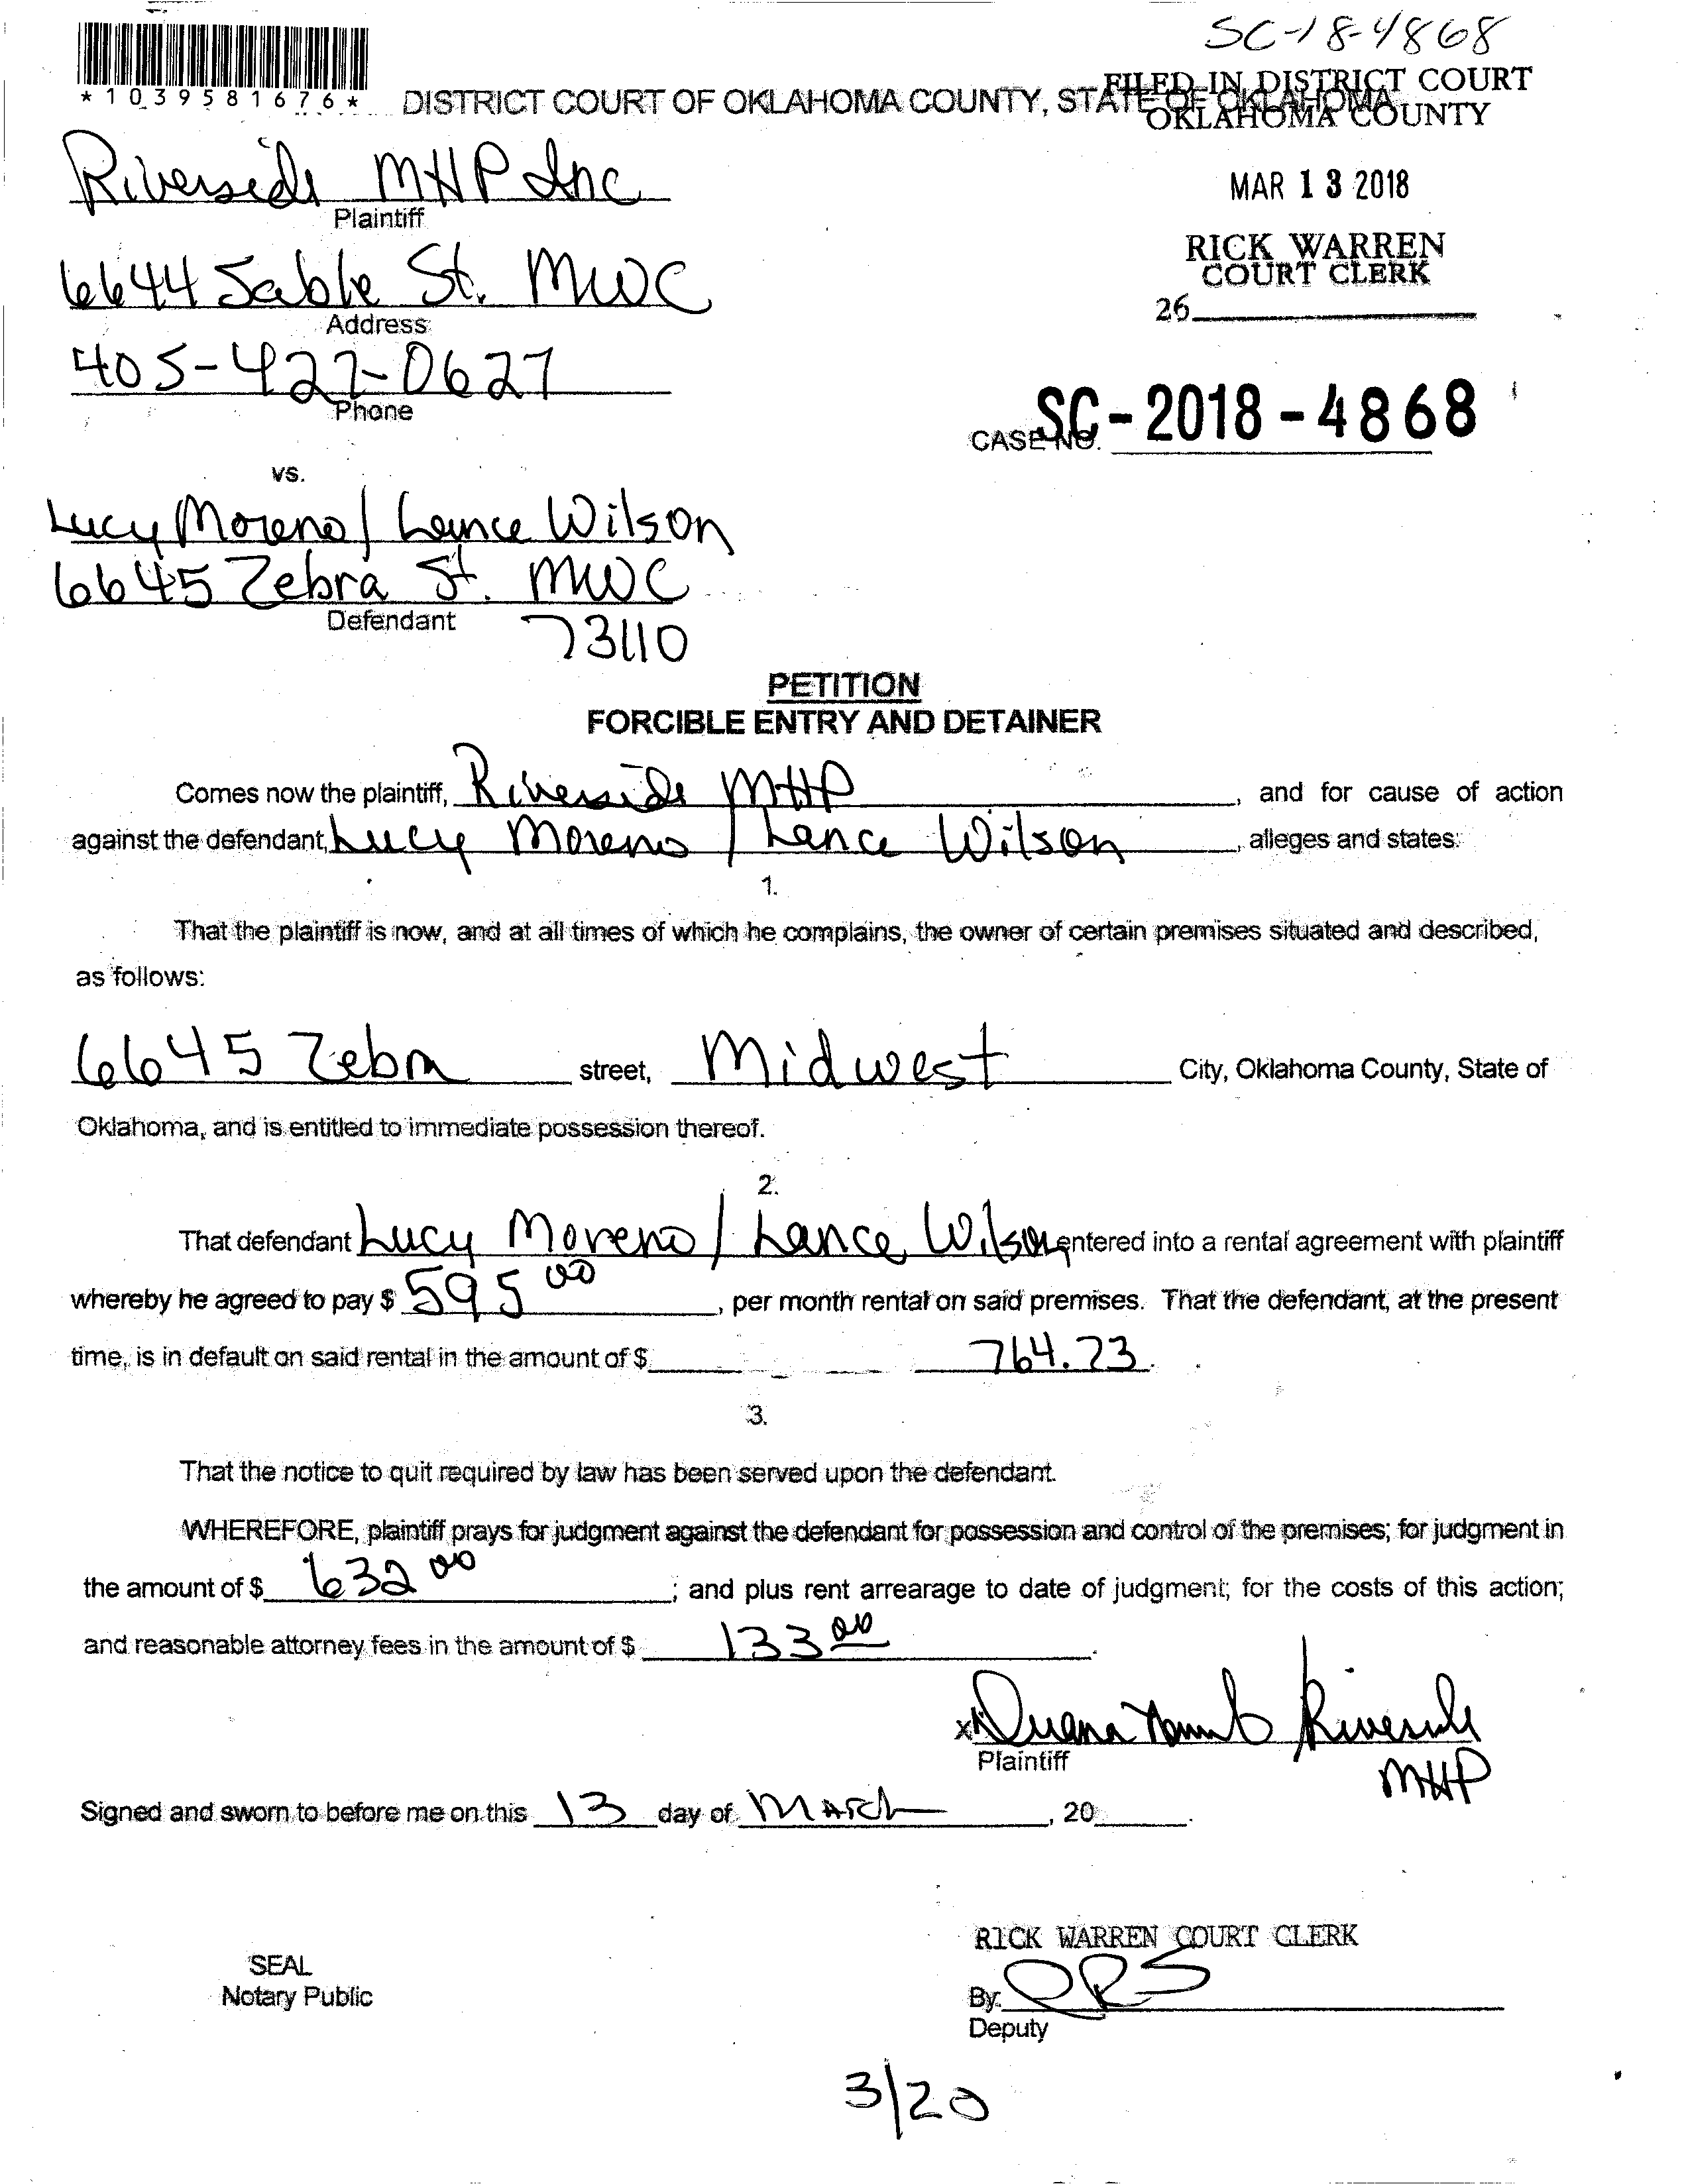 SC-18-4868
FILED IN DISTRICT COURT
OKLAHOMA COUNTY
* 1 0 3 9 5 8 1 6 7 6 *
DISTRICT COURT OF OKLAHOMA COUNTY, STATE OF OKLAHOMA
MAR 13 2018
RICK WARREN
COURT CLERK
26
Riverside MHP Inc
Plaintiff
6644 Sable St. MWC
Address
405-427-0627
Phone
CASE NO. SC-2018-4868
vs.
Lucy Moreno / Lance Wilson
6645 Zebra St. MWC
Defendant
73110
PETITION
FORCIBLE ENTRY AND DETAINER
Comes now the plaintiff, Riverside MHP, and for cause of action
against the defendant, Lucy Moreno / Lance Wilson, alleges and states:
1.
That the plaintiff is now, and at all times of which he complains, the owner of certain premises situated and described,
as follows:
6645 Zebra street, Midwest City, Oklahoma County, State of
Oklahoma, and is entitled to immediate possession thereof.
2.
That defendant Lucy Moreno / Lance Wilson entered into a rental agreement with plaintiff
whereby he agreed to pay $ 595 00, per month rental on said premises. That the defendant, at the present
time, is in default on said rental in the amount of $ 764.73.
3.
That the notice to quit required by law has been served upon the defendant.
WHEREFORE, plaintiff prays for judgment against the defendant for possession and control of the premises; for judgment in
the amount of $ 632 00; and plus rent arrearage to date of judgment; for the costs of this action;
and reasonable attorney fees in the amount of $ 133 00.
x Riverside
Plaintiff
MHP
Signed and sworn to before me on this 13 day of March, 20.
RICK WARREN COURT CLERK
SEAL
Notary Public
By:
Deputy
3/20